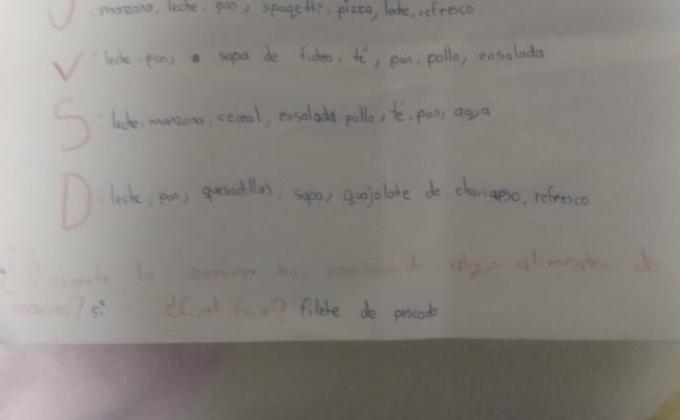 J manzana, leche, pan, spagetti, pizza, leche, refresco
V: leche, pan, sopa de fideo, té, pan, pollo, ensalada
S: leche, manzana, cereal, ensalada, pollo, té, pan, agua
D: leche, pan, quesadillas, sopa, guajolote de, refresco
¿ la semana has algun alimento de
marino? si ¿Cual fue? filete de pescado